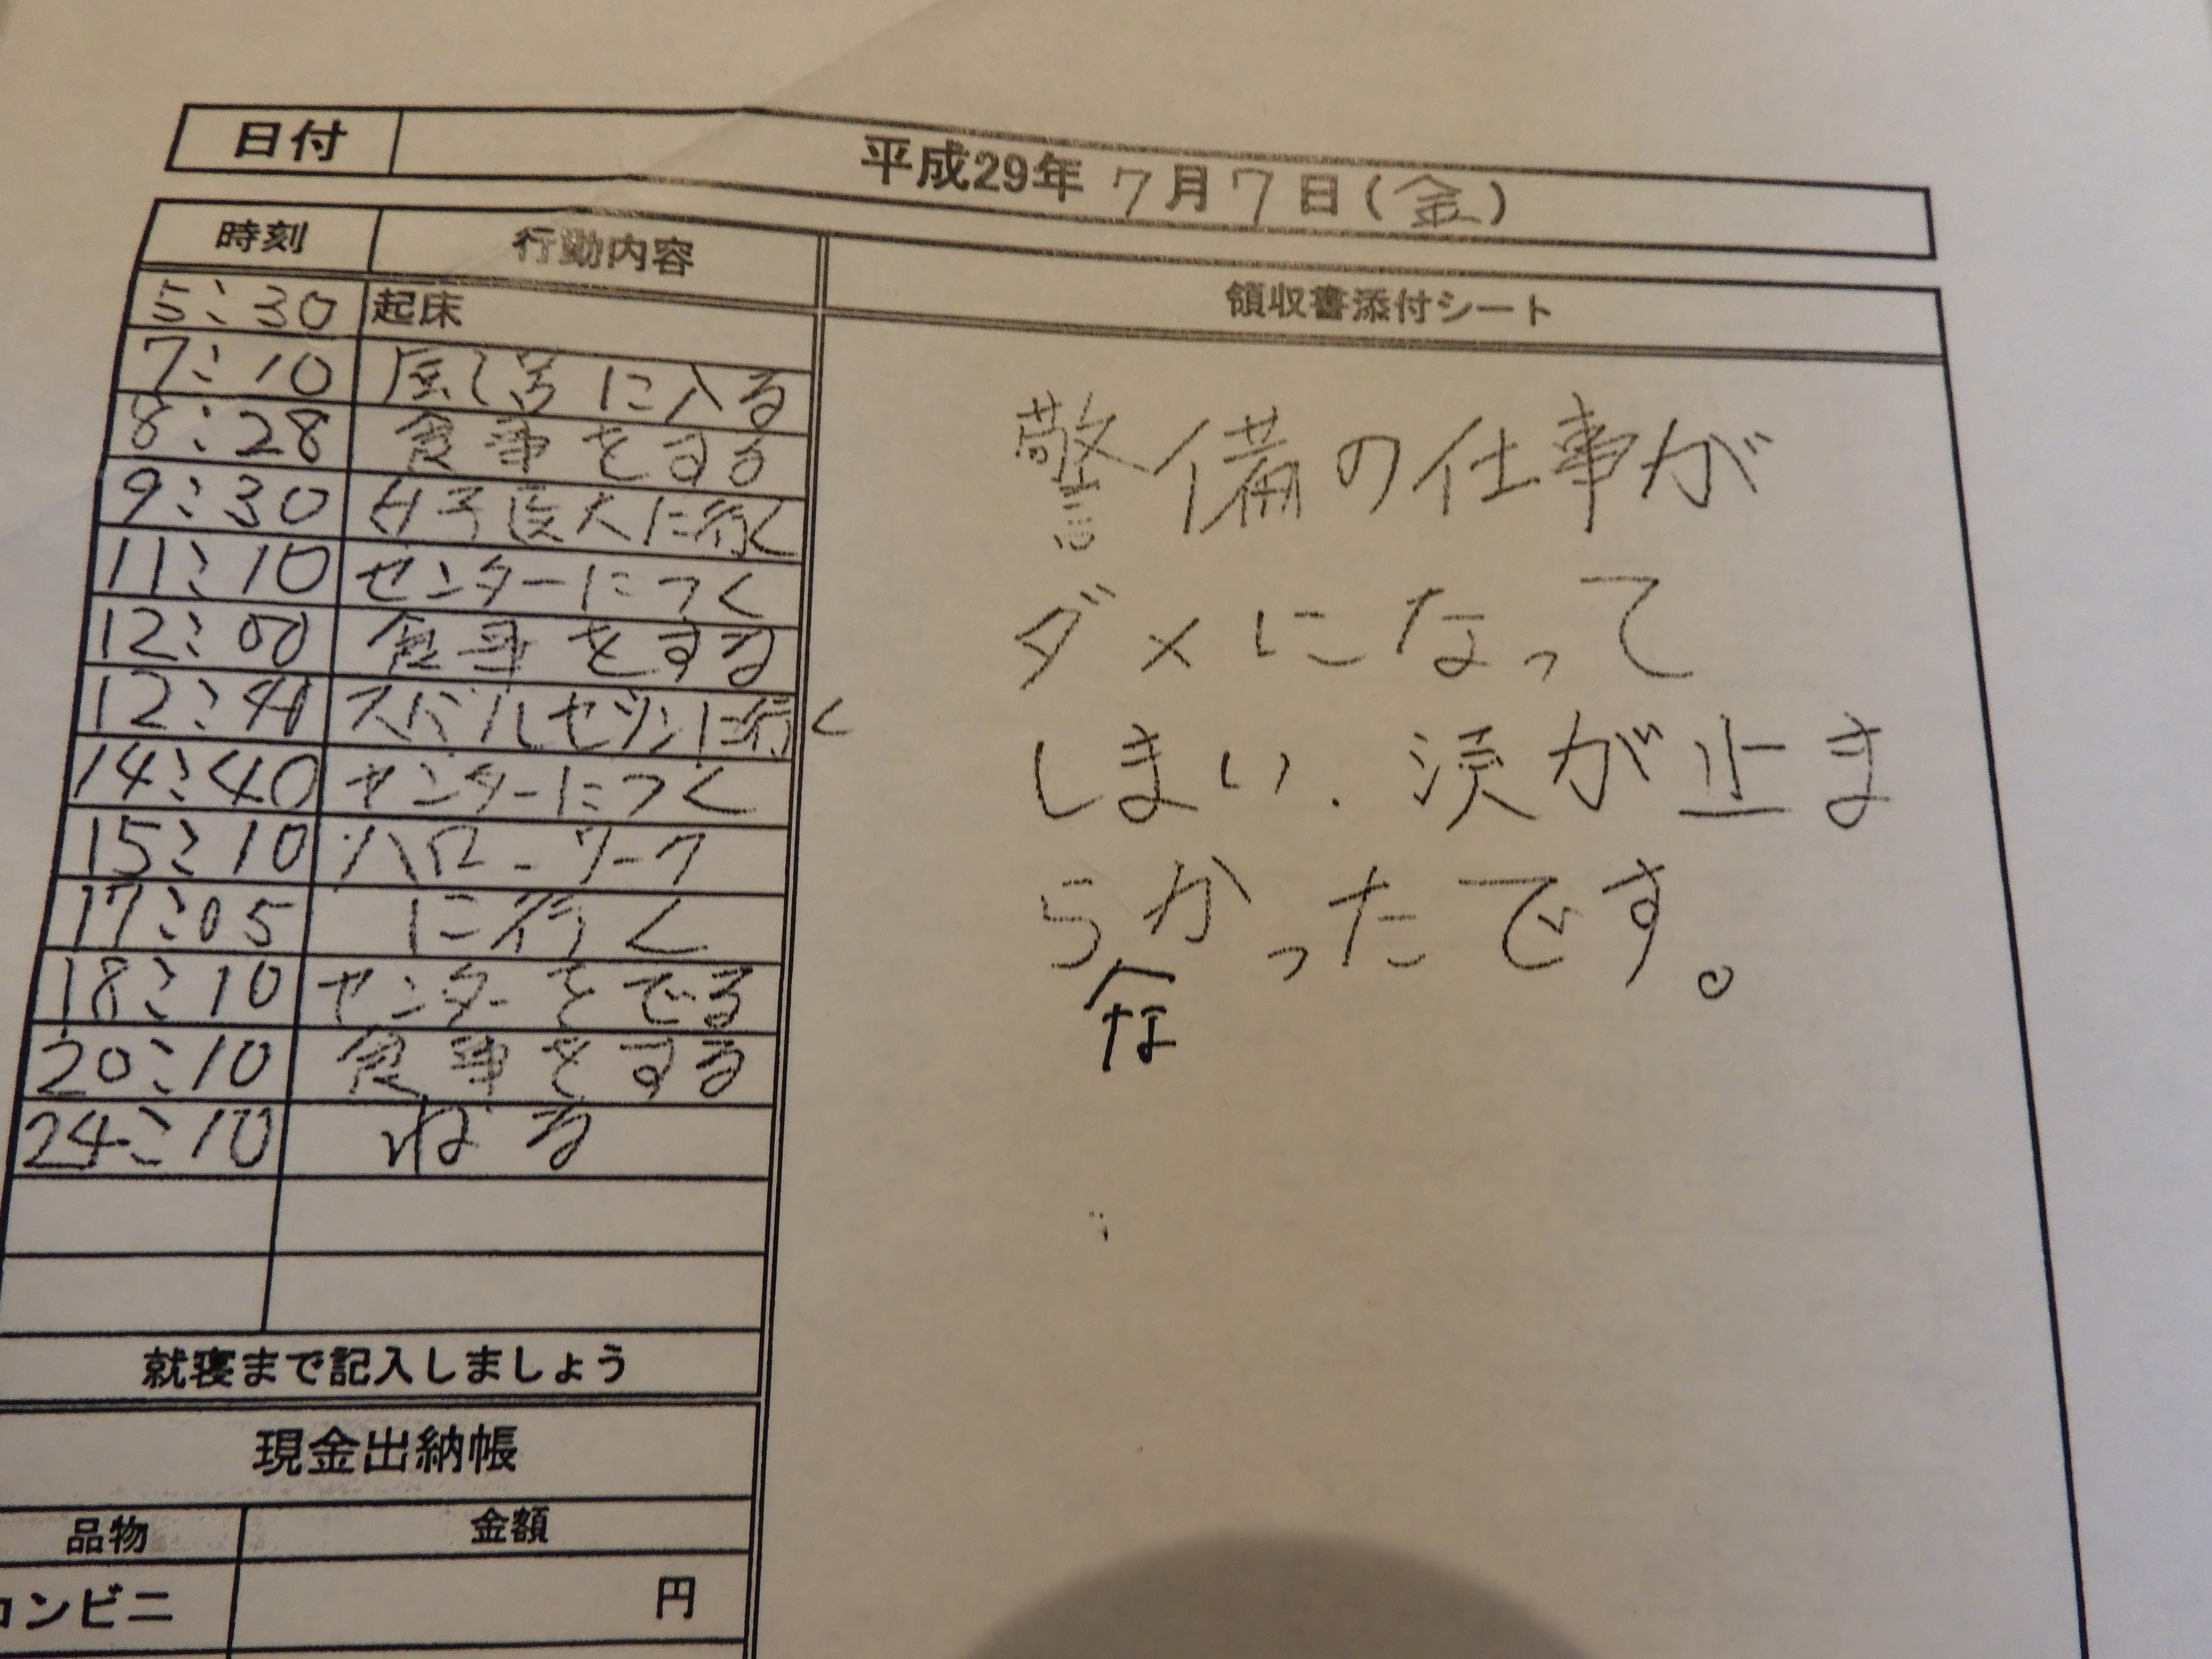 日付 平成29年 7月7日(金)
時刻 行動内容 領収書添付シート
5:30 起床
7:10 風呂に入る
8:28 食事をする
9:30 女子医大に行く
11:10 センターにつく
12:00 食事をする
12:41 に行く
14:40 センターにつく
15:10 ハローワーク
17:05 に行く
18:10 センターをでる
20:10 食事をする
24:10 ねる
警備の仕事が
ダメになって
しまい、涙が止ま
らかったです。
な
就寝まで記入しましょう
現金出納帳
品物 金額
コンビニ 円